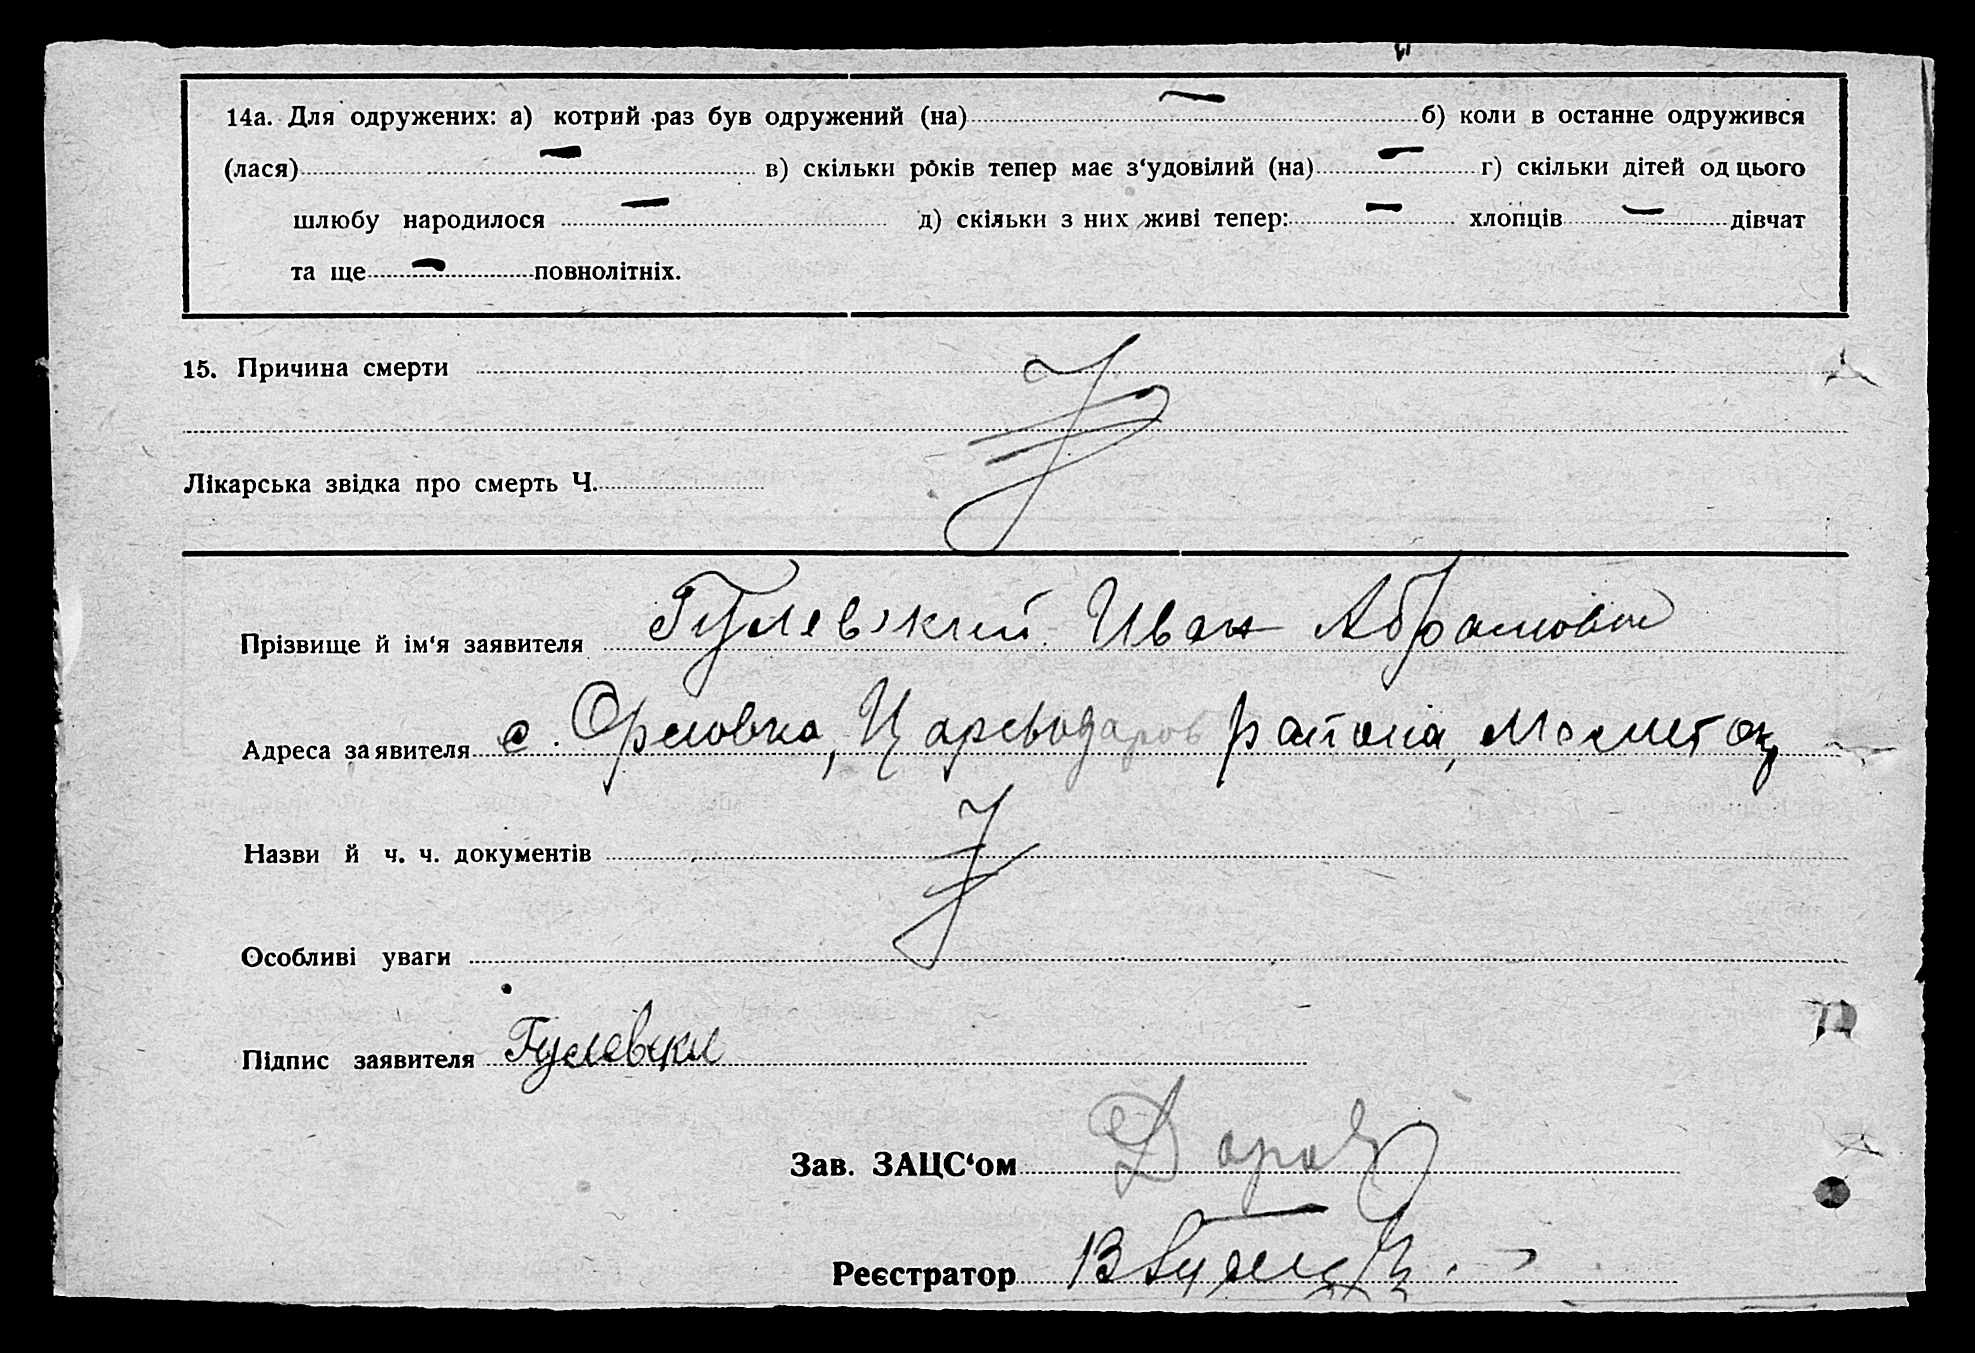 14а. Для одружених: а) котрий раз був одружений (на) — б) коли в останне одружився
(лася) — в) скільки років тепер має з‘удовілий (на) — г) скільки дітей од цього
шлюбу народилося — д) скільки з них живі тепер: — хлопців — дівчат
та ще — повнолітніх.
15. Причина смерти
Лікарська звідка про смерть Ч.
Прізвище й ім‘я заявителя Гулевский Иван Абрамович
Адреса заявителя с. Орловка, Цареводаров района,
Назви й ч. ч. документів
Особливі уваги
Підпис заявителя Гулевски
Зав. ЗАЦС‘ом
Реєстратор